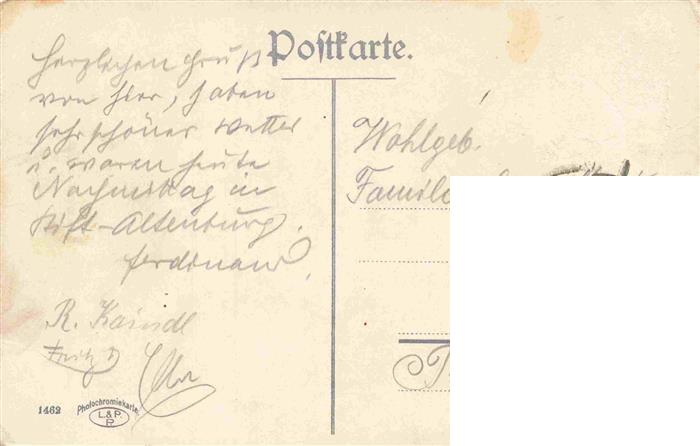 Postkarte.
Herzlichen Gruß
von hier, haben
sehr schönes Wetter
u. waren heute
Nachmittag in
Stift-Altenburg.
Ferdinand
R. Kaindl
Fritz
Wohlgeb.
Familie
1462
Photochromiekarte
L&P.
P.